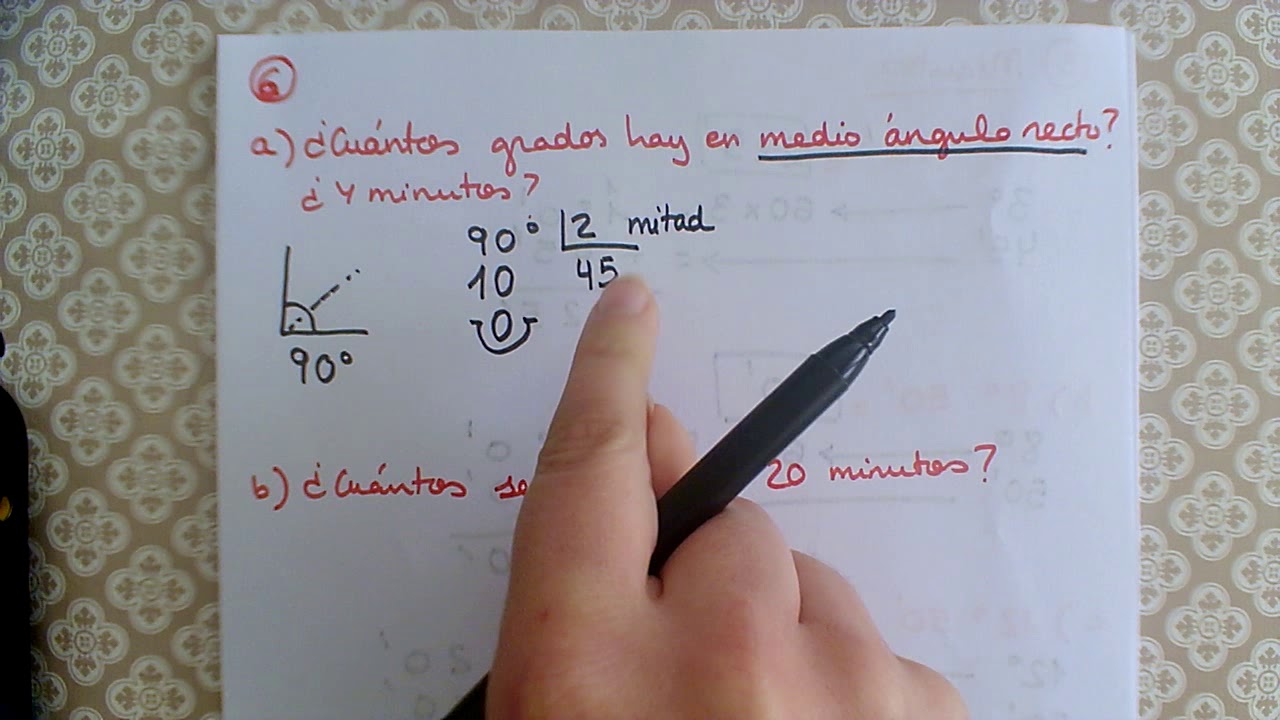 6
a) ¿Cuántos grados hay en medio ángulo recto?
¿Y minutos?
90° 2 mitad
10 45
0
90°
b) ¿Cuántos 20 minutos?